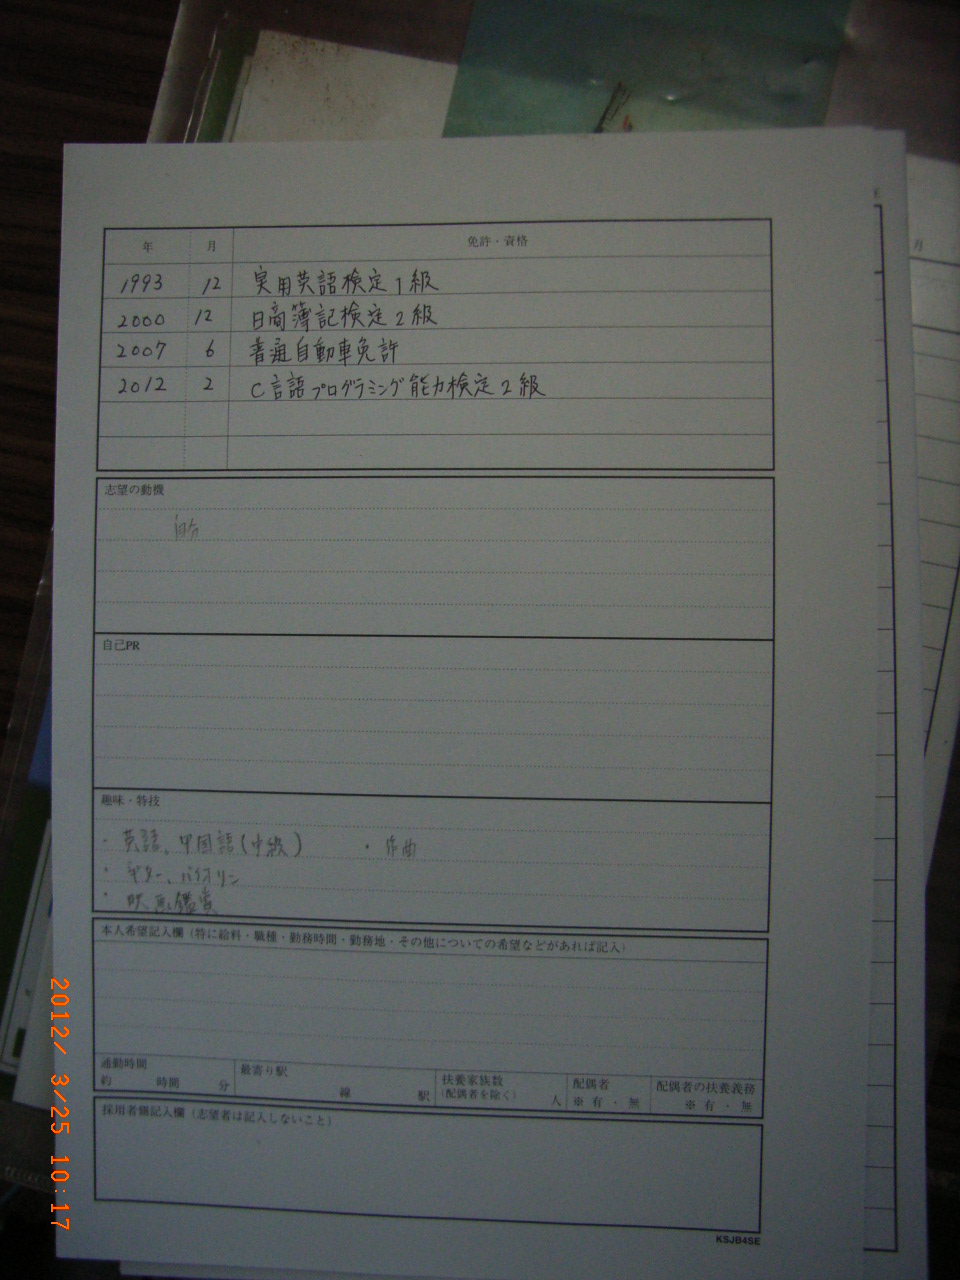 年 月 免許・資格
1993 12 実用英語検定1級
2000 12 日商簿記検定2級
2007 6 普通自動車免許
2012 2 C言語プログラミング能力検定2級
志望の動機
自分
自己PR
趣味・特技
・英語、中国語(中級) ・作曲
・ギター、バイオリン
・映画鑑賞
本人希望記入欄(特に給料・職種・勤務時間・勤務地・その他についての希望などがあれば記入)
通勤時間 最寄り駅 扶養家族数 配偶者 配偶者の扶養義務
約 時間 分 線 駅 (配偶者を除く) 人 ※有・無 ※有・無
採用者側記入欄(志望者は記入しないこと)
KSJB4SE
月
2012/ 3/25 10:17